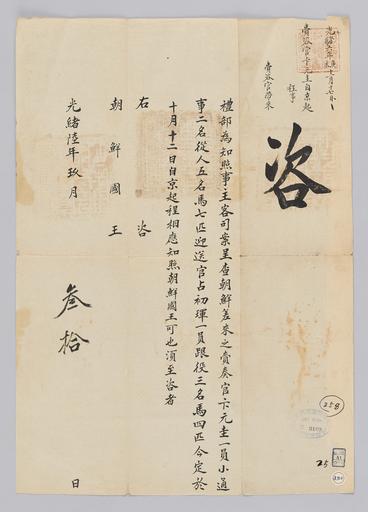 光緒六年庚辰十一月
賫咨官卞元圭自京起
程事
賫咨官帶來
咨
禮部為知照事主客司案呈查朝鮮差來之賫奏官卞元圭一員小通
事二名從人五名馬七匹迎送官占初琿一員跟役三名馬四匹今定於
十月十二日自京起程相應知照朝鮮國王可也須至咨者
右咨
朝鮮國王
光緒陸年玖月
叁拾
日
258
25